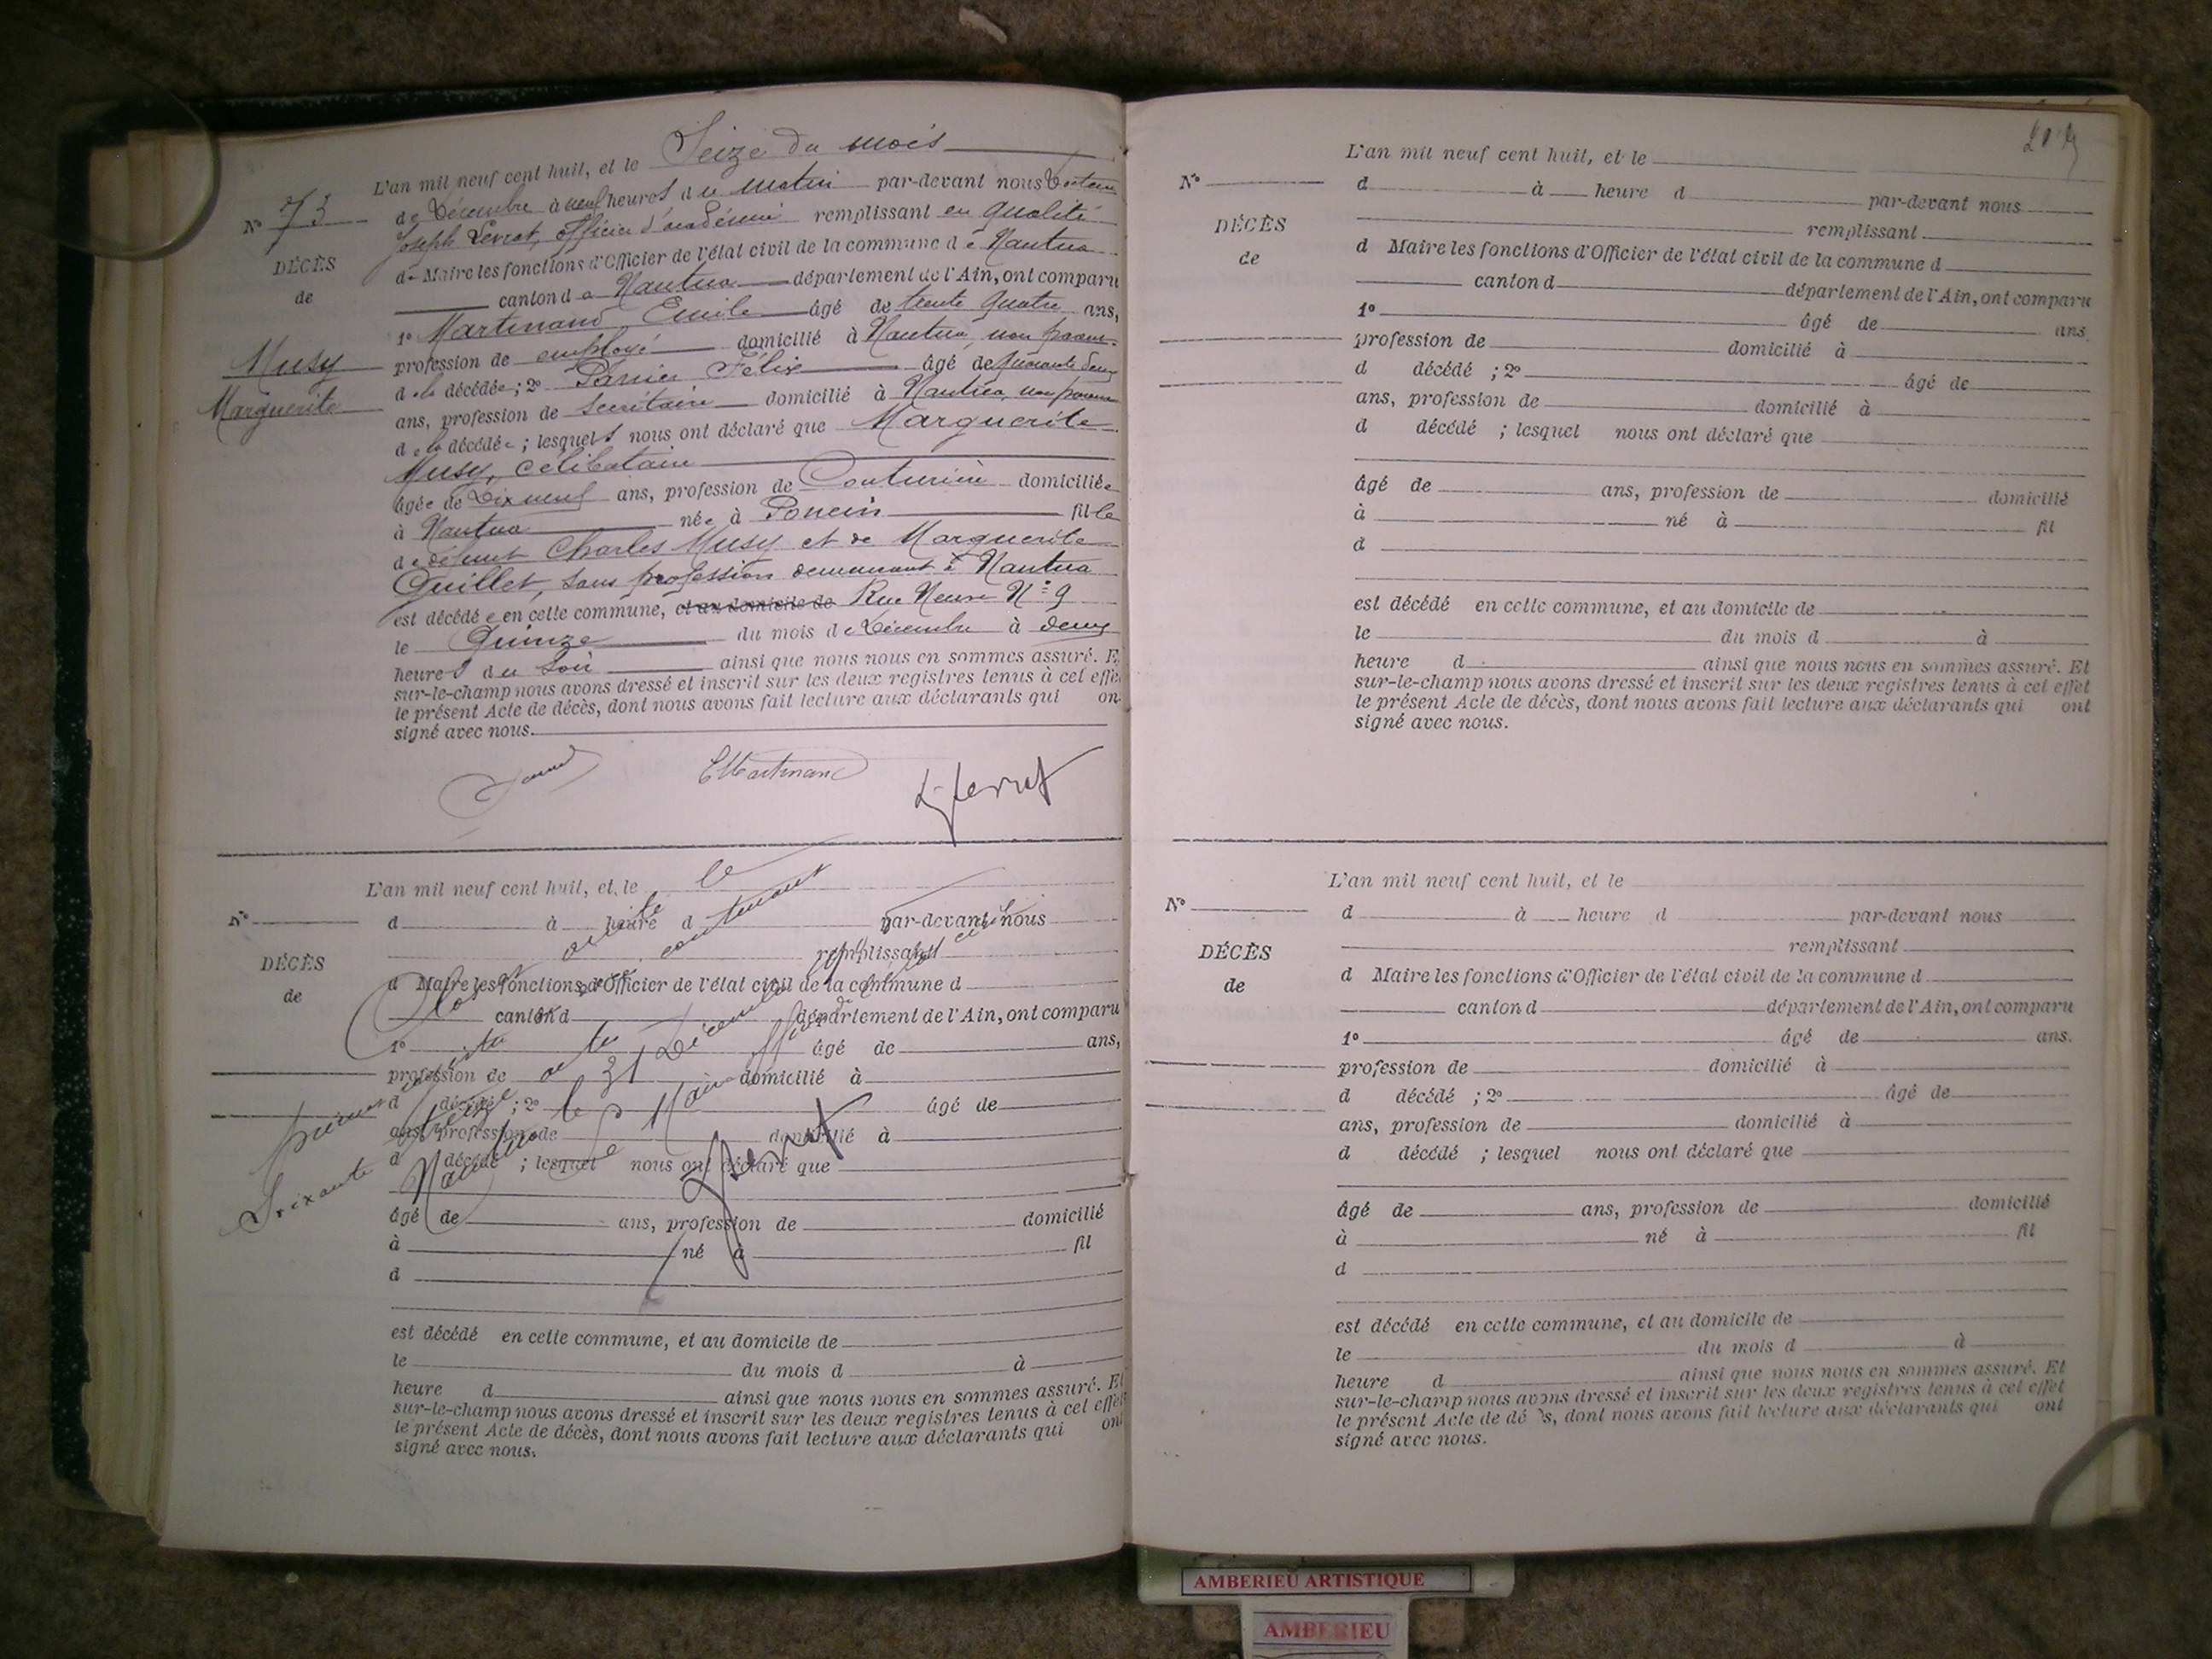 L'an mil neuf cent huit, et le Seize du mois
N° 73
de Décembre à neuf heures du matin par-devant nous Docteur
Joseph Levrat, officier d'académie remplissant en qualité
DÉCÈS
de Maire les fonctions d'Officier de l'état civil de la commune de Nantua
de
canton de Nantua département de l'Ain, ont comparu
1° Martinand Emile âgé de trente quatre ans,
Musy
profession de employé domicilié à Nantua, non parent
Marguerite
de la décédée ; 2° Félix âgé de quarante deux
ans, profession de Secrétaire domicilié à Nantua, non parent
de la décédée ; lesquels nous ont déclaré que Marguerite
Musy, célibataire
âgée de Dix neuf ans, profession de Couturière domiciliée
à Nantua née à Poncin fille
de défunt Charles Musy et de Marguerite
Quillet, sans profession demeurant à Nantua
est décédée en cette commune, et au domicile de Rue Neuve N° 9
le Quinze du mois de Décembre à deux
heures du soir ainsi que nous nous en sommes assuré. E
sur-le-champ nous avons dressé et inscrit sur les deux registres tenus à cet effe
le présent Acte de décès, dont nous avons fait lecture aux déclarants qui on
signé avec nous.
EMartinand
L'an mil neuf cent huit, et le
N°
d à heure d par-devant nous
remplissant
DÉCÈS
d Maire les fonctions d'Officier de l'état civil de la commune d
de
canton d département de l'Ain, ont comparu
1° âgé de ans,
profession de domicilié à
d décédé ; 2° âgé de
ans, profession de domicilié à
d décédé ; lesquel nous ont déclaré que
âgé de ans, profession de domicilié
à né à fil
d
est décédé en cette commune, et au domicile de
le du mois d à
heure d ainsi que nous nous en sommes assuré. Et
sur-le-champ nous avons dressé et inscrit sur les deux registres tenus à cet effet
le présent Acte de décès, dont nous avons fait lecture aux déclarants qui ont
signé avec nous.
Clos et arrêté le
contenant
Soixante treize
Nantua le 31 Décembre
Le Maire
L'an mil neuf cent huit, et le
N°
d à heure d par-devant nous
remplissant
DÉCÈS
d Maire les fonctions d'Officier de l'état civil de la commune d
de
canton d département de l'Ain, ont comparu
1° âgé de ans.
profession de domicilié à
d décédé ; 2° âgé de
ans, profession de domicilié à
d décédé ; lesquel nous ont déclaré que
âgé de ans, profession de domicilié
à né à fil
d
est décédé en cette commune, et au domicile de
le du mois d à
heure d ainsi que nous nous en sommes assuré. Et
sur-le-champ nous avons dressé et inscrit sur les deux registres tenus à cet effet
le présent Acte de décès, dont nous avons fait lecture aux déclarants qui ont
signé avec nous.
L'an mil neuf cent huit, et le
N°
d à heure d par-devant nous
remplissant
DÉCÈS
d Maire les fonctions d'Officier de l'état civil de la commune d
de
canton d département de l'Ain, ont comparu
1° âgé de ans.
profession de domicilié à
d décédé ; 2° âgé de
ans, profession de domicilié à
d décédé ; lesquel nous ont déclaré que
âgé de ans, profession de domicilié
à né à fil
d
est décédé en cette commune, et au domicile de
le du mois d à
heure d ainsi que nous nous en sommes assuré. Et
sur-le-champ nous avons dressé et inscrit sur les deux registres tenus à cet effet
le présent Acte de dé s, dont nous avons fait lecture aux déclarants qui ont
signé avec nous.
AMBERIEU ARTISTIQUE
AMBERIEU